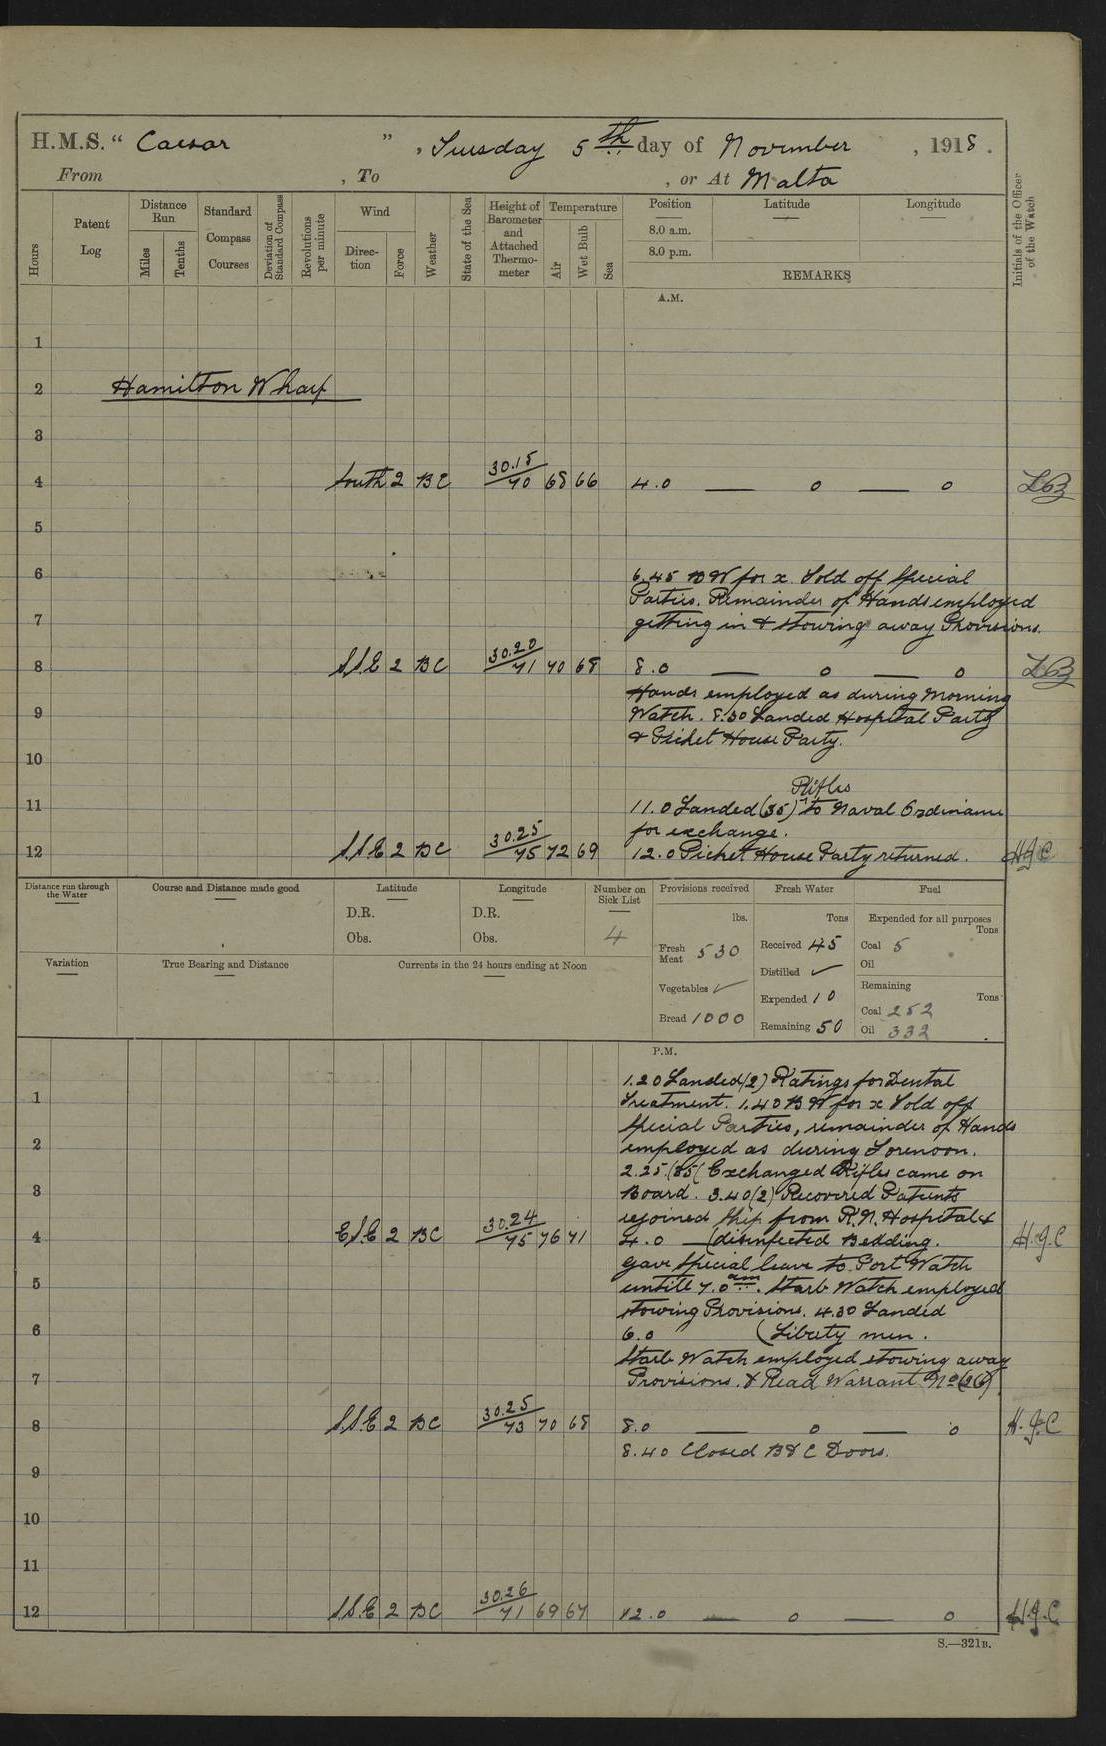 H.M.S. " Caesar " , Tuesday 5th day of November , 1918 .
From , To , or At Malta
Hours
Patent Log
Distance Run
Miles
Tenths
Standard Compass Courses
Deviation of Standard Compass
Revolutions per minute
Wind
Direction
Force
Weather
State of the Sea
Height of Barometer and Attached Thermometer
Temperature
Air
Wet Bulb
Sea
Position
8.0 a.m.
8.0 p.m.
Latitude
Longitude
REMARKS
Initials of the Officer of the Watch
A.M.
1
2 Hamilton Wharf
3
4 South 2 BC 30.15/70 68 66 4.0 — 0 — 0
5
6 6.45 BW for x. Told off Special
Parties. Remainder of Hands employed
7 getting in & stowing away Provisions.
8 S.S.E 2 BC 30.20/71 70 68 8.0 — 0 — 0
Hands employed as during Morning
9 Watch. 8.30 Landed Hospital Party
& Picket House Party.
10
Rifles
11 11.0 Landed (35) to Naval Ordinance
for exchange.
12 S.S.E 2 BC 30.25/75 72 69 12.0 Picket House Party returned. H.J.C
Distance run through the Water
Course and Distance made good
Latitude
D.R.
Obs.
Longitude
D.R.
Obs.
Number on Sick List
4
Variation
True Bearing and Distance
Currents in the 24 hours ending at Noon
Provisions received
lbs.
Fresh Meat 530
Vegetables ✓
Bread 1000
Fresh Water
Tons
Received 45
Distilled ✓
Expended 10
Remaining 50
Fuel
Expended for all purposes
Tons
Coal 5
Oil
Remaining
Tons
Coal 252
Oil 332
P.M.
1.20 Landed (2) Ratings for Dental
1 Treatment. 1.40 BW for x Told off
Special Parties, remainder of Hands
2 employed as during Forenoon.
2.25 (35( Exchanged Rifles came on
3 Board. 3.40 (2) Recovered Patients
rejoined Ship from R.N. Hospital &
4 E.S.E 2 BC 30.24/75 76 71 4.0 — (disinfected Bedding. H.J.C
Gave Special leave to Port Watch
5 untill 7.0 am. Starb Watch employed
stowing Provisions. 4.30 Landed
6 6.0 (Liberty men.
Starb Watch employed stowing away
7 Provisions. & Read Warrant No (26)
8 S.S.E 2 BC 30.25/73 70 68 8.0 — 0 — 0 H.J.C
8.40 Closed B & C Doors.
9
10
11
12 S.S.E 2 BC 30.26/71 69 67 12.0 — 0 — 0 H.J.C
S.—321B.